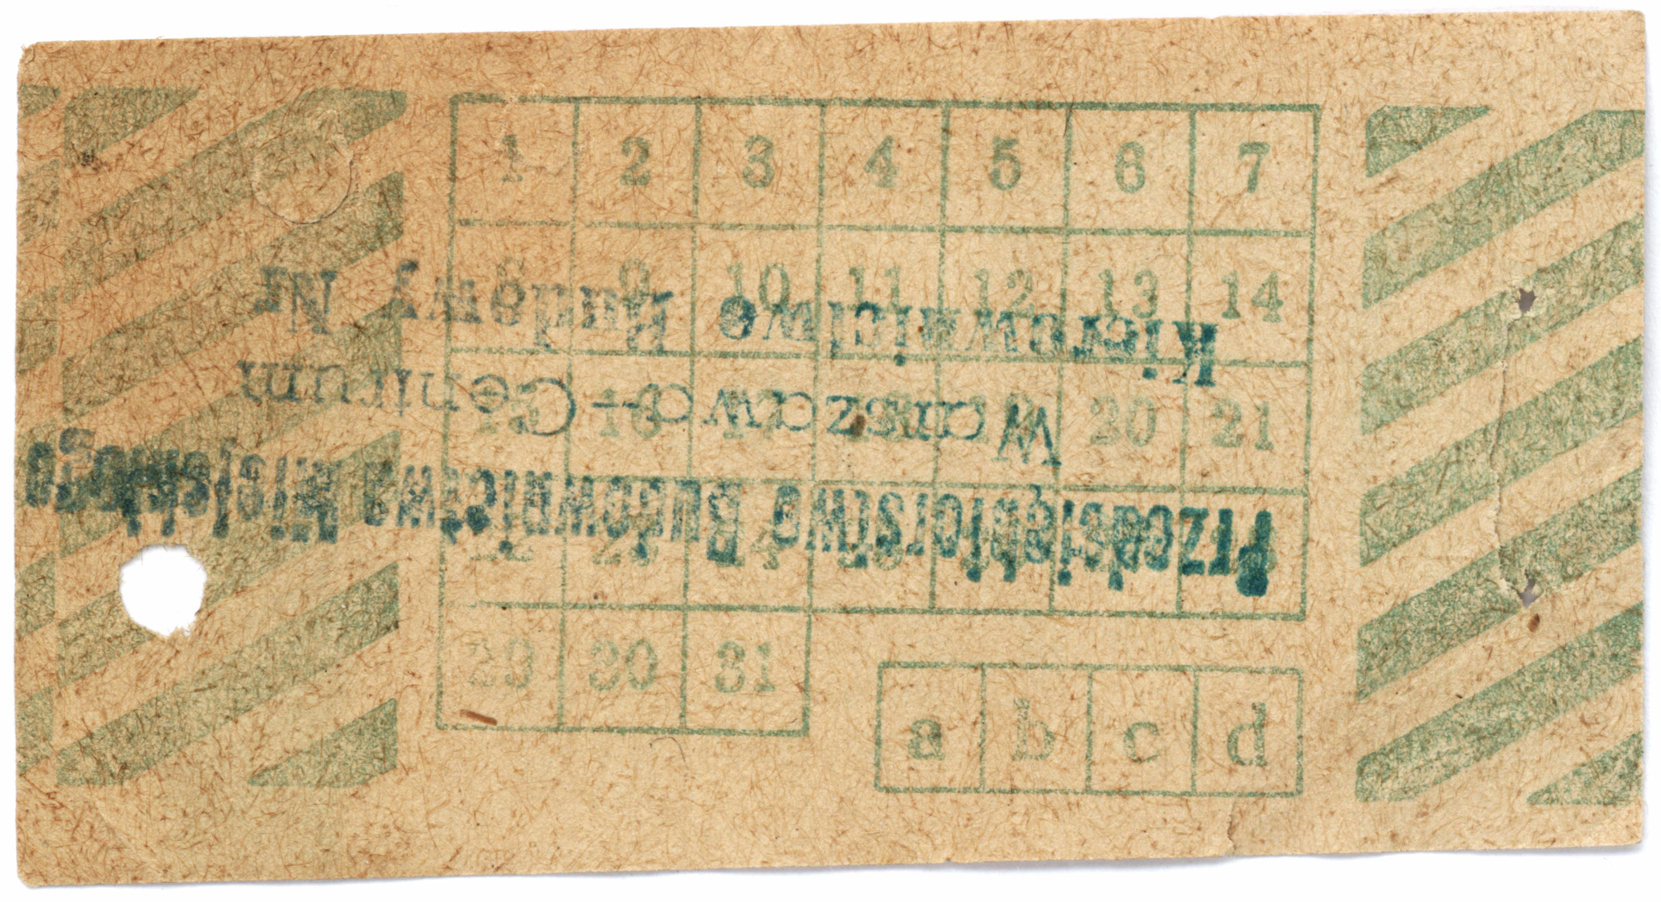 1 2 3 4 5 6 7
8 9 10 11 12 13 14
20 21
29 30 31
a b c d
Przedsiębiorstwo Budownictwa Miejskiego
Warszawa-Centrum
Kierownictwo Budowy Nr